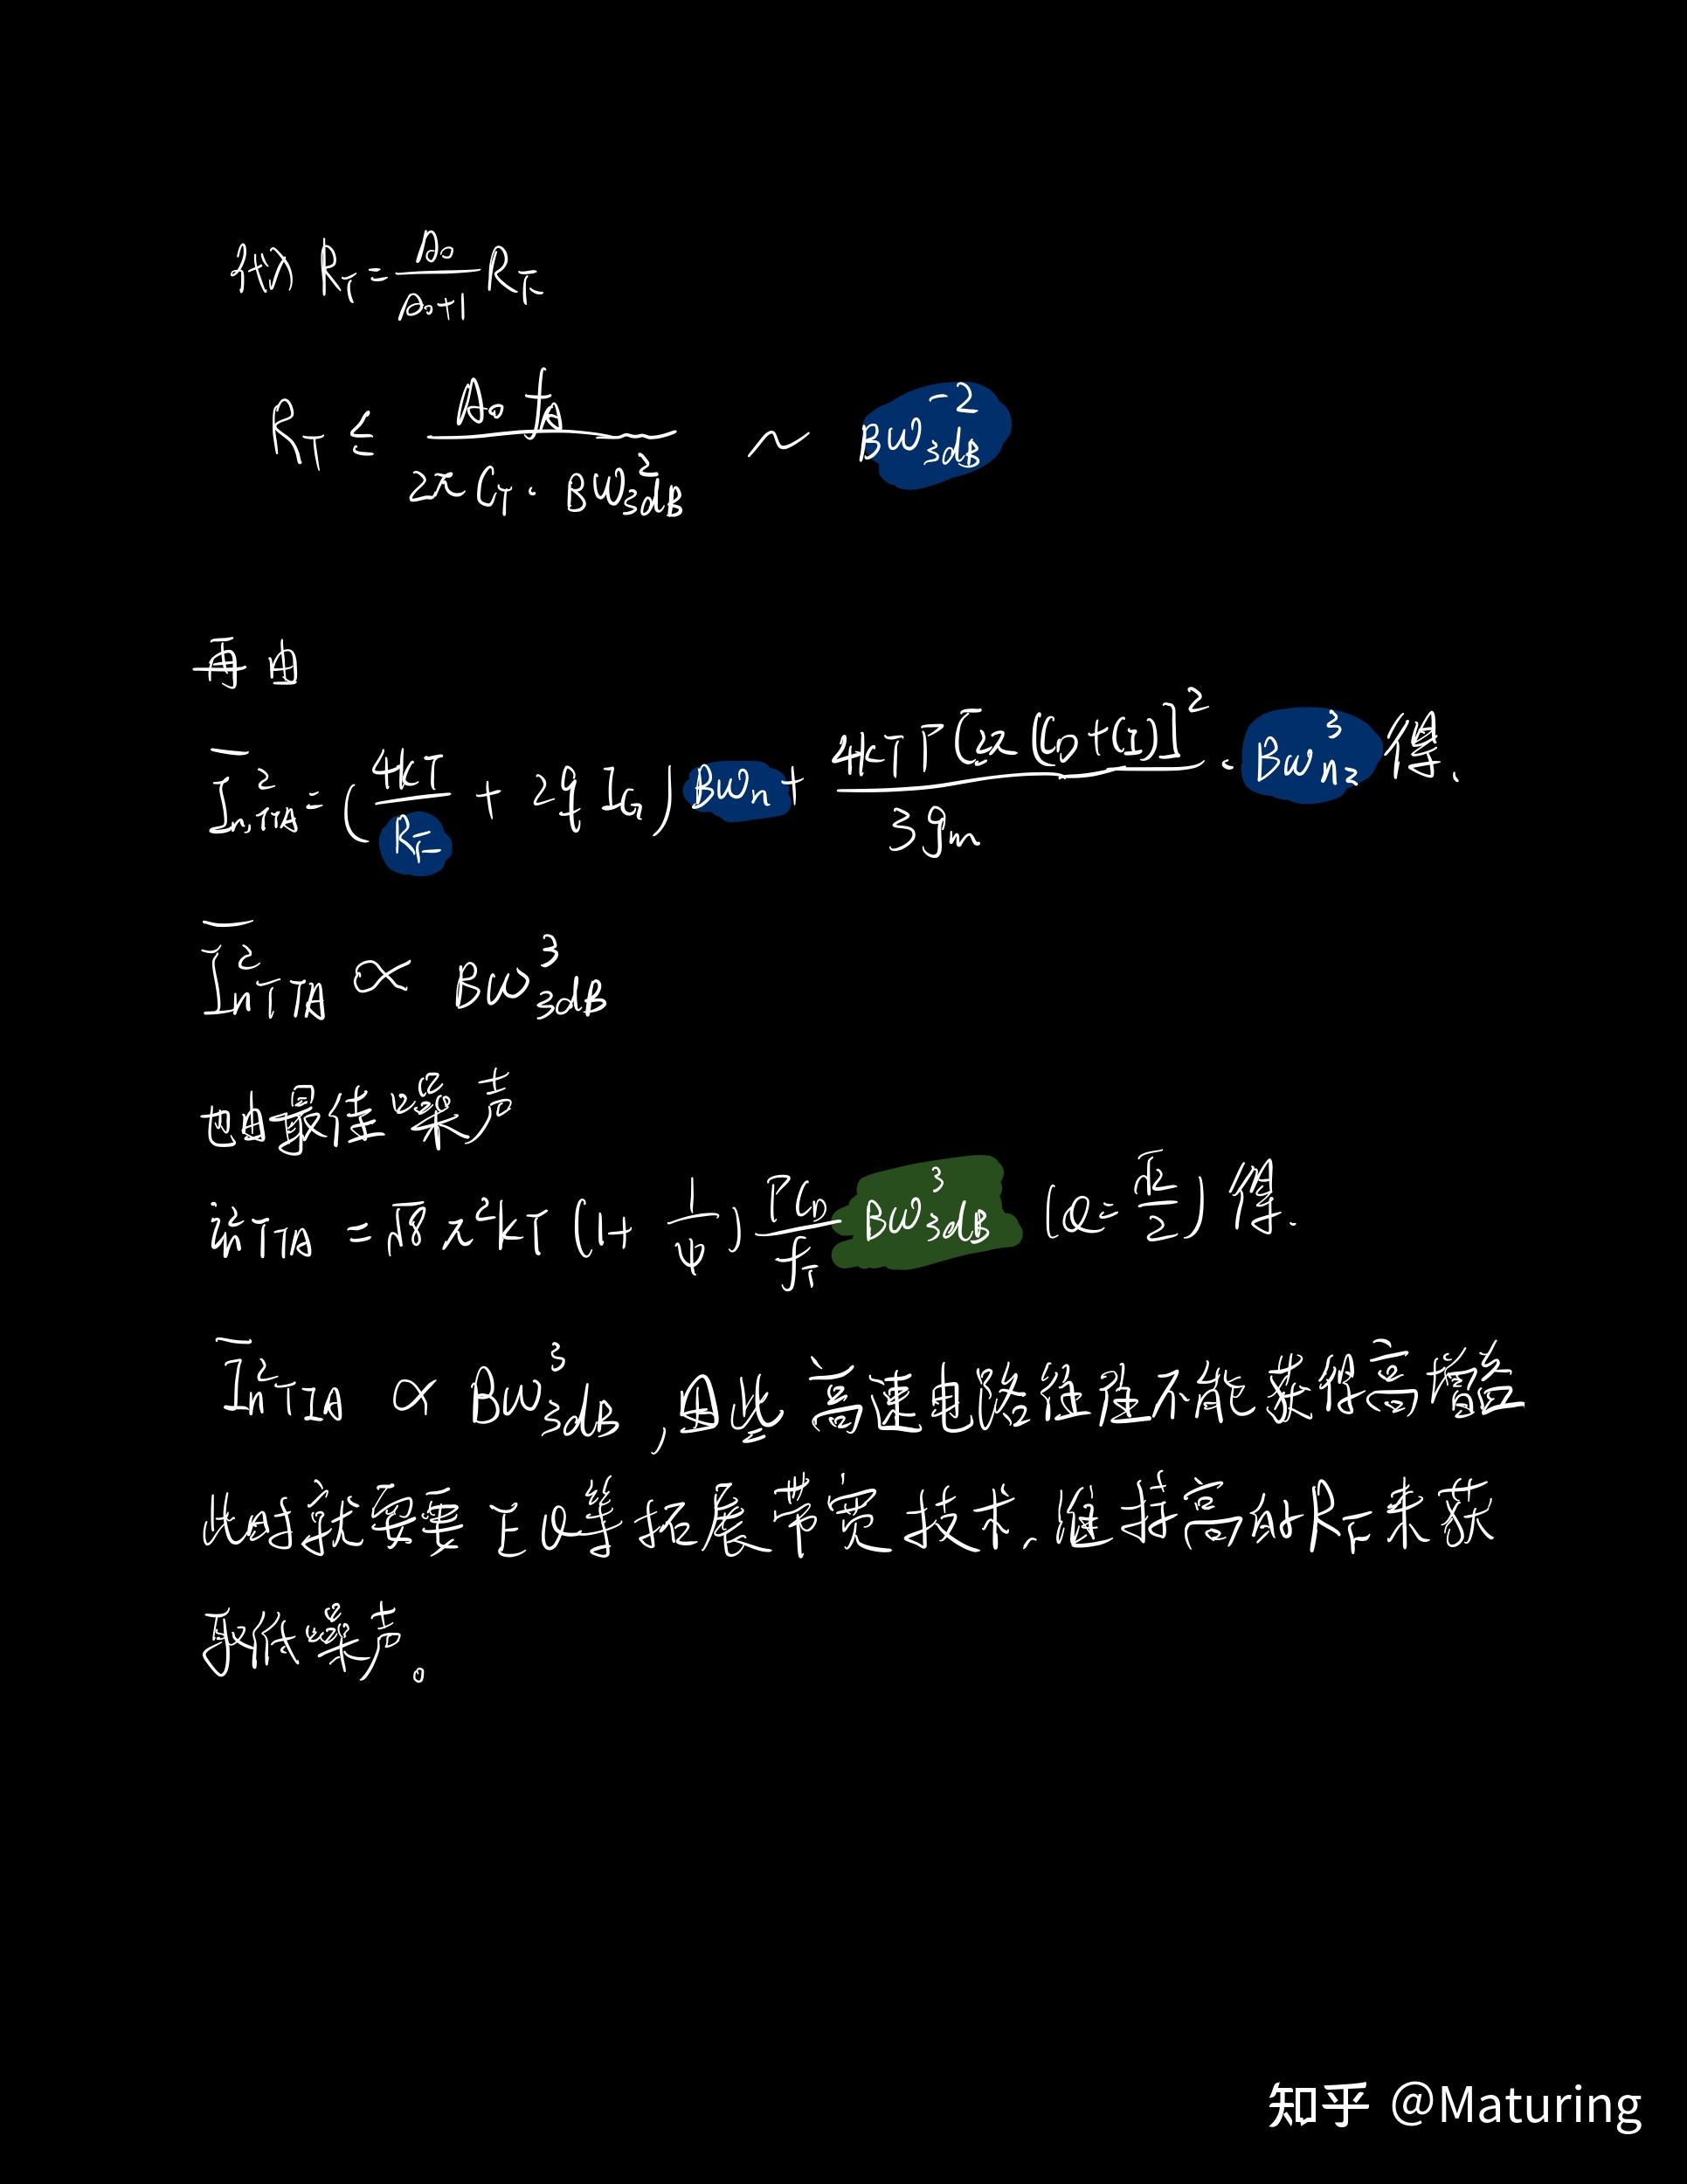 代入 R_T = A₀/(A₀+1) R_F
R_T ≤ A₀ f_A / (2π C_T · BW²_3dB) ~ BW⁻²_3dB
再由
Ī²_n,TIA = (4kT/R_F + 2q I_G) BW_n + 4kTΓ[2π(C_D+C_I)]²/(3g_m) · BW³_n2 得、
Ī²_nTIA ∝ BW³_3dB
也由最佳噪声
i²_nTIA = √8 π²kT (1+ 1/ψ) ΓC_D/f_T BW³_3dB (Q=√2/2) 得.
Ī²_nTIA ∝ BW³_3dB,因此高速电路往往不能获得高增益
此时就需要 EQ等拓展带宽技术、维持高的R_F来获
取低噪声。
知乎 @Maturing